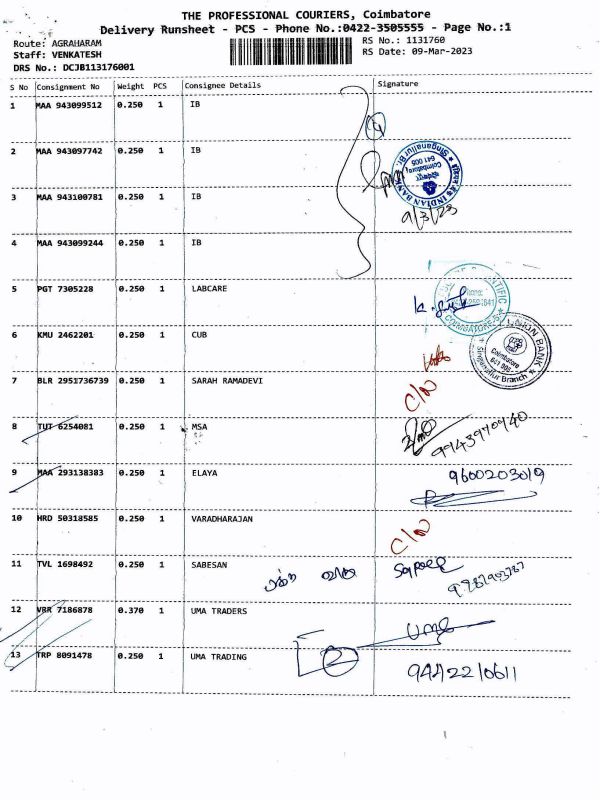 THE PROFESSIONAL COURIERS, Coimbatore
Delivery Runsheet - PCS - Phone No.:0422-3505555 - Page No.:1
Route: AGRAHARAM
Staff: VENKATESH
DRS No.: DCJB113176001
RS No.: 1131760
RS Date: 09-Mar-2023
S No Consignment No Weight PCS Consignee Details Signature
1 MAA 943099512 0.250 1 IB
4
2 MAA 943097742 0.250 1 IB
INDIAN BANK
Singanallur Br.
Coimbatore
641 005
3 MAA 943100781 0.250 1 IB
9/3/23
4 MAA 943099244 0.250 1 IB
5 PGT 7305228 0.250 1 LABCARE
COIMBATORE-5
6 KMU 2462201 0.250 1 CUB
UNION BANK
Coimbatore
641 005
Singanallur Branch
7 BLR 2951736739 0.250 1 SARAH RAMADEVI
8 TUT 6254081 0.250 1 MSA
9943970940
9 MAA 293138383 0.250 1 ELAYA
9600203019
10 HRD 50318585 0.250 1 VARADHARAJAN
11 TVL 1698492 0.250 1 SABESAN
12 VBR 7186878 0.370 1 UMA TRADERS
uma
13 TRP 8091478 0.250 1 UMA TRADING
2
9442210611